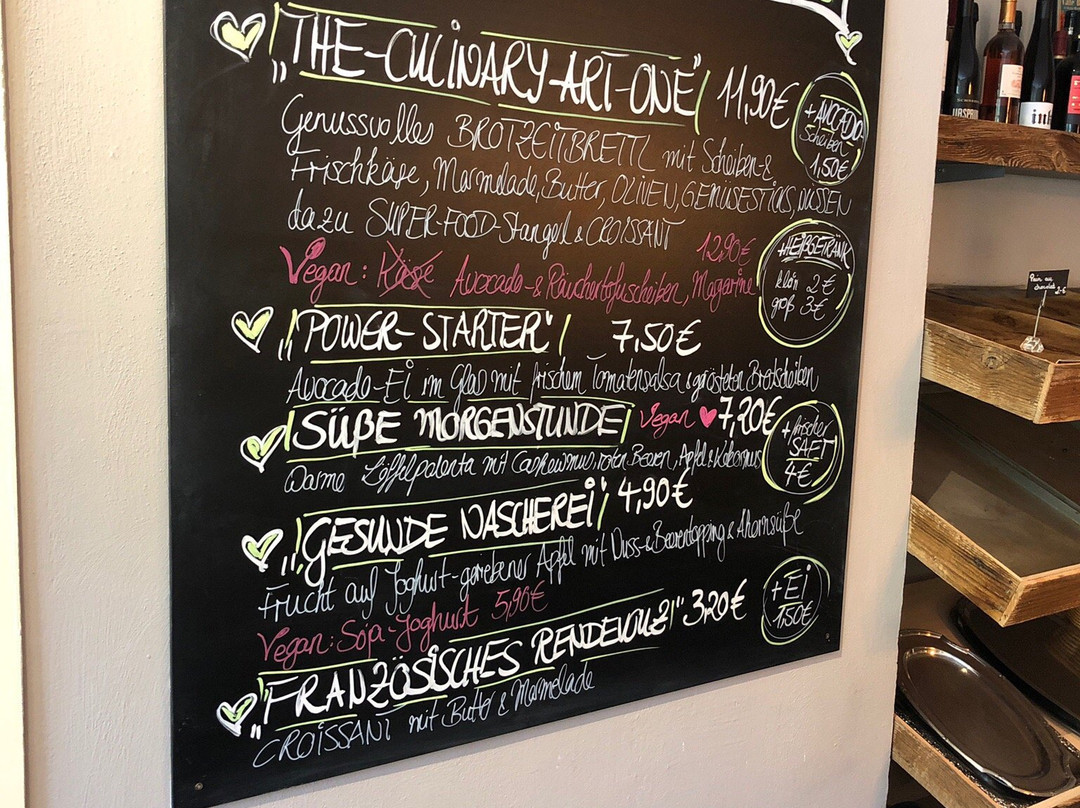 "THE-CULINARY-ART-ONE" 11,90€
Genussvolles BROTZEITBRETTL mit Scheiben-&
Frischkäse, Marmelade, Butter, OLIVEN, GEMÜSESTICKS, NÜSSEN
dazu SUPER-FOOD-Stangerl & CROISSANT
12,90€
Vegan: Käse Avocado-& Räuchertofuscheiben, Magarine
"POWER-STARTER" 7,50€
Avocado-Ei im Glas mit frischem Tomatensalsa & gerösteten Brotscheiben
SÜßE MORGENSTUNDE Vegan ♥ 7,20€
Warme Löffelpolenta mit Cashewmus, roten Beeren, Apfel & Kokosmus
"GESUNDE NASCHEREI" 4,90€
Frucht auf Joghurt-geriebener Apfel mit Nuss-& Beerentopping & Ahornsüße
Vegan: Soja-Joghurt 5,90€
"FRANZÖSISCHES RENDEVOUZ" 3,20€
CROISSANT mit Butter & Marmelade
+ AVOCADO
Scheiben
1,50€
+HEIßGETRÄNK
klein 2€
groß 3€
+ frischer
SAFT
4€
+ Ei
1,50€
Pain au
chocolat